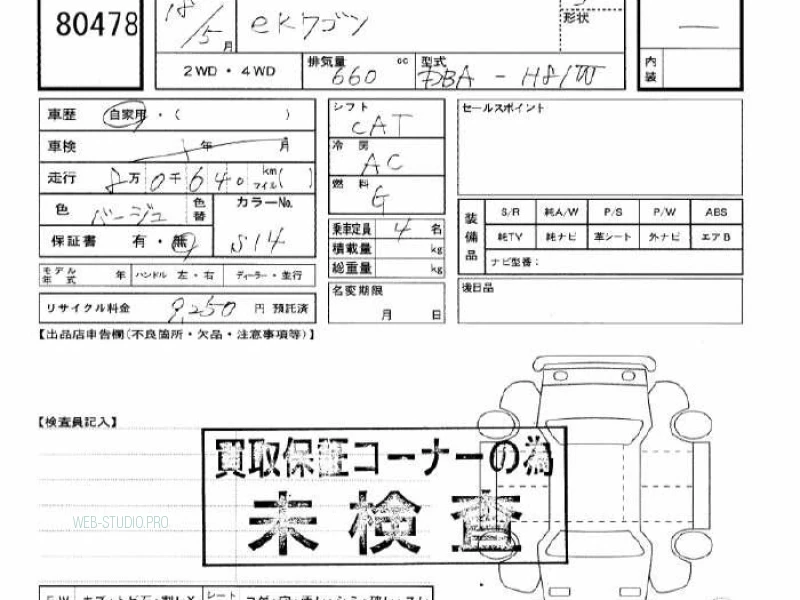 80478
18/5月
eKワゴン
形状
内装
2WD・4WD
排気量 660 cc
型式 DBA-H81W
車歴 自家用・( )
車検 年 月
走行 8万0千640 km マイル( )
色 ベージュ
色替
カラーNo. S14
保証書 有・無
モデル年式 年 ハンドル 左・右 ディーラー・並行
リサイクル料金 9,250 円 預託済
シフト CAT
冷房 AC
燃料 G
乗車定員 4 名
積載量 kg
総重量 kg
名変期限
月 日
セールスポイント
装備品
S/R 純A/W P/S P/W ABS
純TV 純ナビ 革シート 外ナビ エアB
ナビ型番:
後日品
【出品店申告欄(不良箇所・欠品・注意事項等)】
【検査員記入】
買取保証コーナーの為
未検査
WEB-STUDIO.PRO